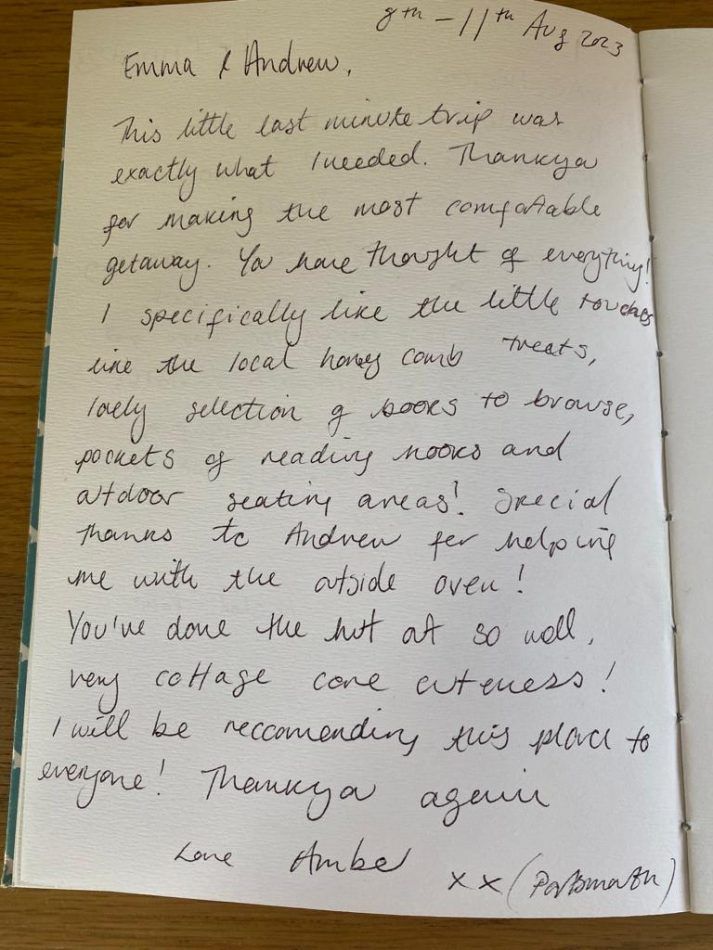 8th - 11th Aug 2023
Emma & Andrew,
This little last minute trip was
exactly what I needed. Thankyou
for making the most comfortable
getaway. You have thought of everything!
I specifically like the little touches
like the local honey comb treats,
lovely selection of books to browse,
pockets of reading nooks and
outdoor seating areas! Special
thanks to Andrew for helping
me with the outside oven!
You've done the hut out so well,
very cottage core cuteness!
I will be reccomending this place to
everyone! Thankyou again
Love Amber
xx (Portsmouth)